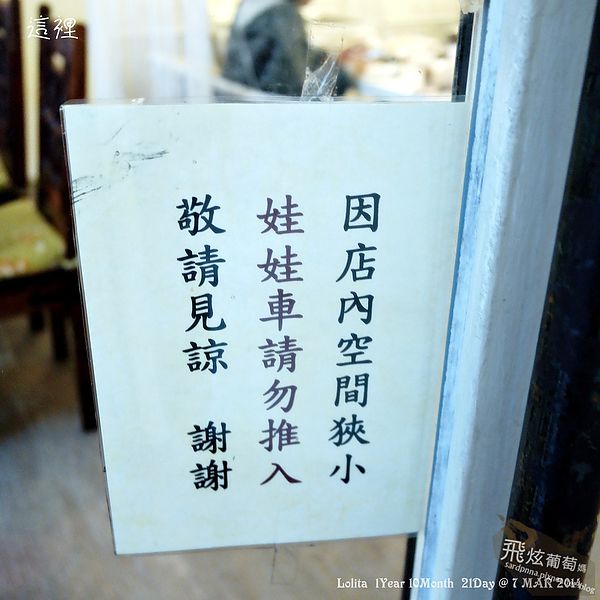 這裡
因店內空間狹小
娃娃車請勿推入
敬請見諒 謝謝
飛炫葡萄媽
Lolita 1Year 10Month 21Day @ 7 MAR 2014